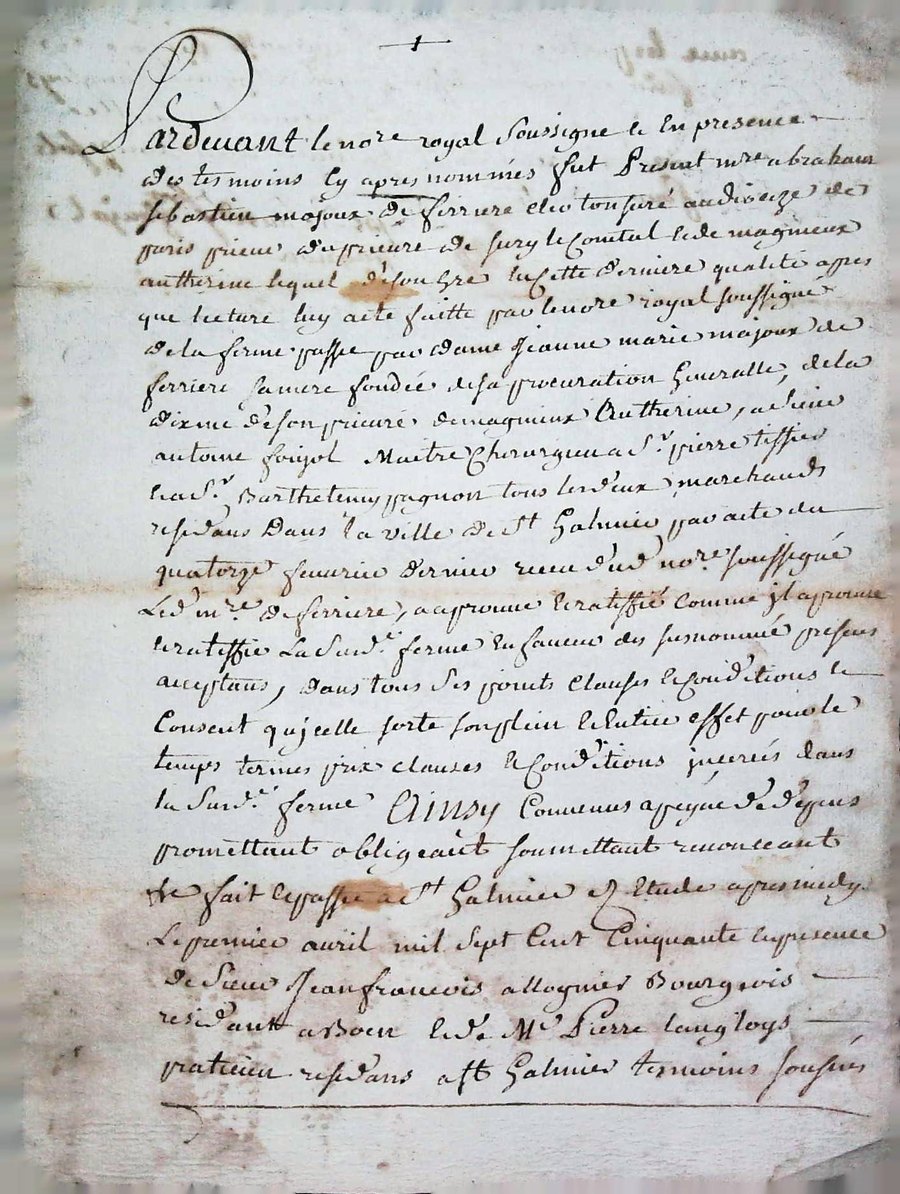 +
Pardevant le nore royal soussigne & En presence
des tesmoins cy apres nommés fut Present mre abraham
sebastien majoux de ferriere clerc tonsuré audiocize de
paris prieur du prieure de sury le Comtal & de magnieux
autherive lequel de son gre en Cette derniere qualité apres
que lecture luy aete faitte par le nore royal soussigné
de la ferme passée par dame Jeanne marie majoux de
ferriere sa mere fondée de sa procuration Generalle, de la
dixme de son prieuré de magnieux Autherive, a sieur
antoine foujol Maitre Chirurgien a Sr. pierre tissier
& a Sr. Barthelemy pagnon tous les deux marchands
residans Dans la ville de St Galmier par acte du
quatorze fevrier dernier receu dud nore soussigné
Led mre. de ferriere, a aprouve & ratiffié comme jl aprouve
& ratiffie La Susde. ferme En faveur des susnommé presens
acceptans, dans tous ses points clauses & Conditions &
Consent qujcelle sorte son plein & Entier effet pour le
temps termes prix clauses & Conditions jncerées dans
la Susde. ferme Ainsy Convenus a peyne de depens
promettant obligeant soumettant renonceant
fait & passé a St Galmier Etude apres midy
Le premier avril mil sept Cent Cinquante en presence
de sieur Jean francois allognier Bourgeois
residant a Boen & de Me Pierre langloys
praticien residans a St Galmier tesmoins sousnés